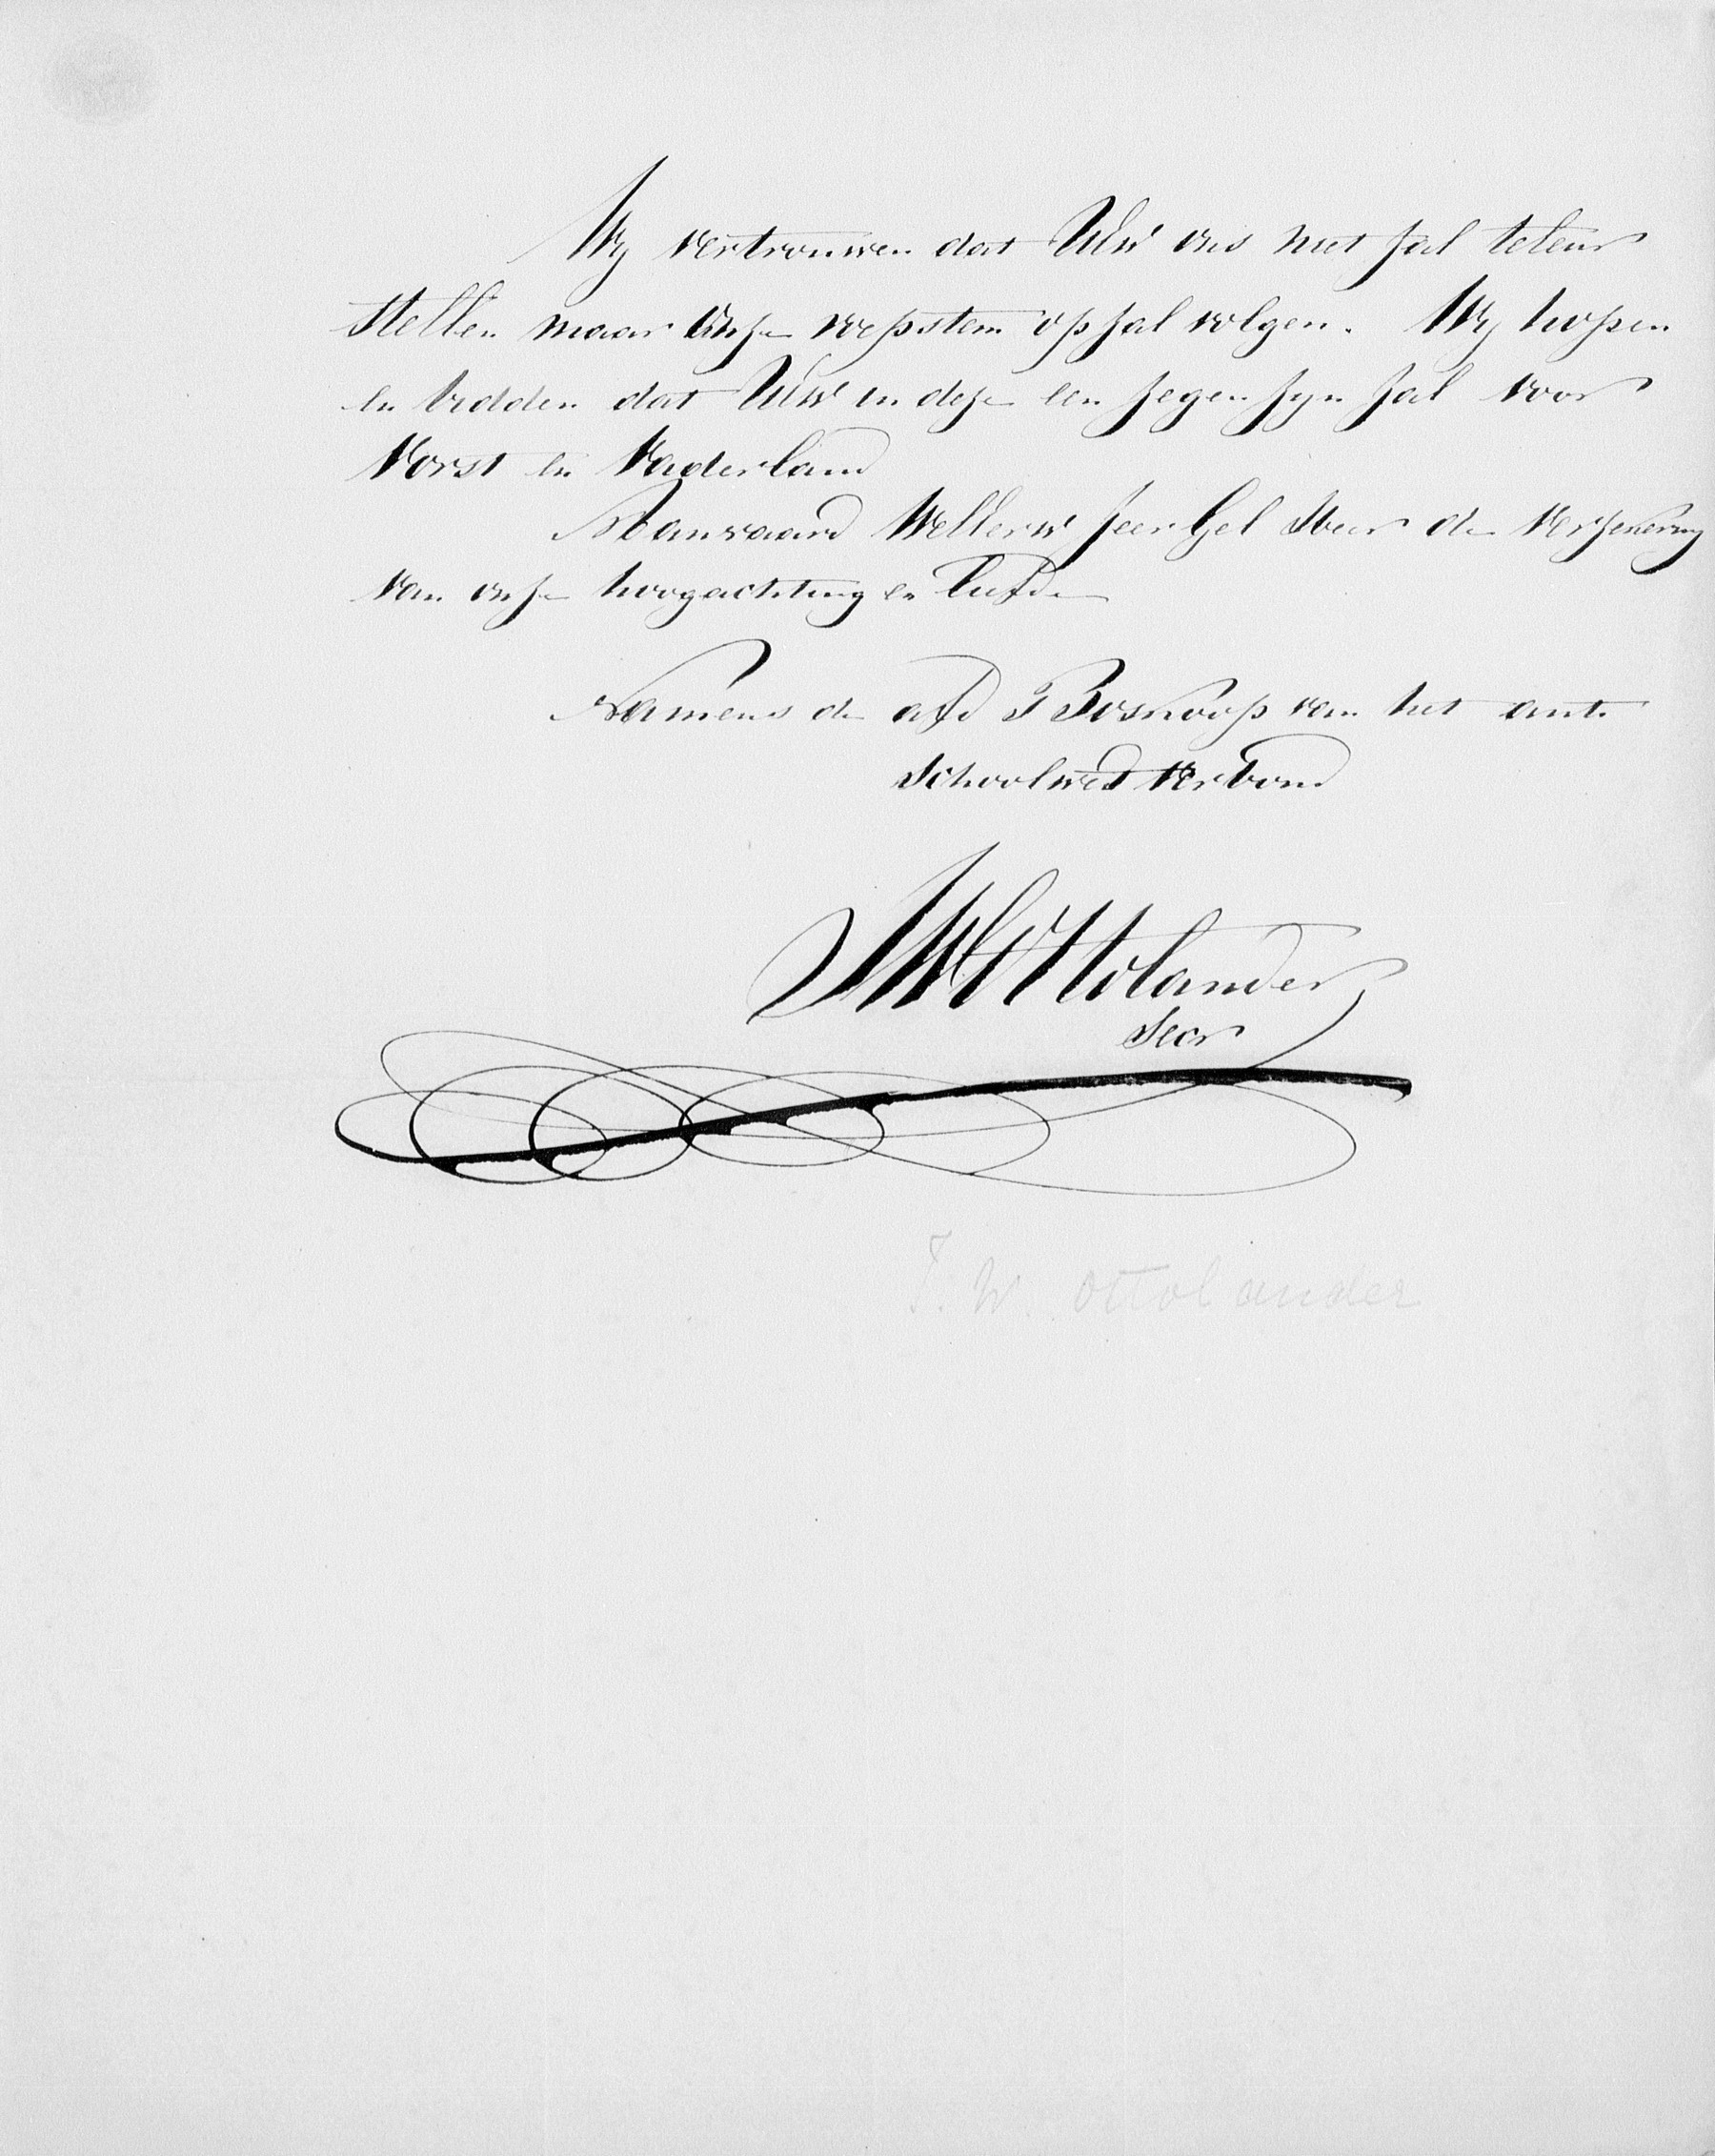 Wij vertrouwen dat UEw ons niet zal teleur
stellen maar onze roepstem op zal volgen. Wij hopen
en bidden dat UEw in deze een zegen zijn zal voor
Vorst en Vaderland
Aanvaard WelEerw zeer Gel Heer de verzekering
van onze hoogachting en liefde
Namens de afd Boskoop van het anti
Schoolwet Verbond
JW Ottolander
Secr
J. W. Ottolander